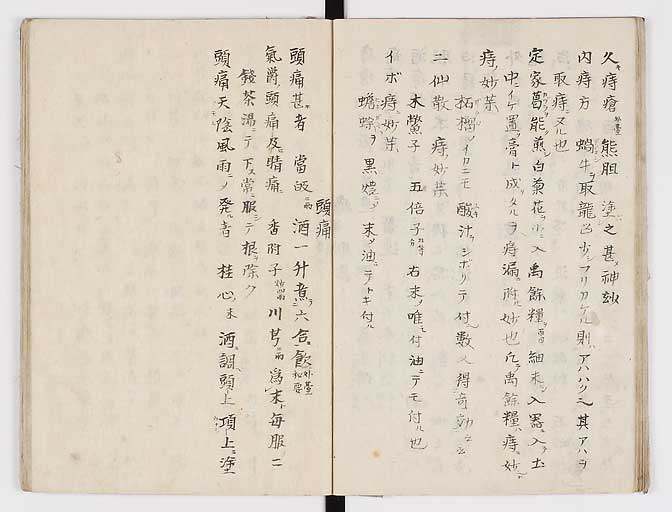 久キ痔瘡 外臺 熊胆 塗之甚神効
内痔方 蝸牛ヲ取龍凶少シフリカケル則ハアハハク也其アハヲ
取痔ヌル也
定家葛能煎シ白菊花少入禹餘糧 細末シ入器ニ入土
中イケ置膏ト成タルヲ痔漏ニ附ル妙也凡テ禹餘糧ハ痔ニ妙ナリ
痔妙薬
柘榴ノイカニモ酸汁ヲシボリテ付ル数人得奇効ヲ云云
二仙散 木痔妙薬
木鱉子 五倍子 各等分 右末ノ唯ニ付油ニテモ付ル也
イボ痔ニ妙薬
蟾蜍ヲ黒焼ニシ末シ油ニテトキ付ル
頭痛
頭痛甚キ者 當皈 二両 酒一升煮ヲ六合飲 外臺秘要
氣欝頭痛及睛痛ニ 香附子 四両 川芎 二両 為末ト毎服二
錢茶湯ニテ下ス常服シテ根ヲ除ク
頭痛天陰風雨ニノ発ル者 桂心 末 酒ニ調頭上項上ニ塗